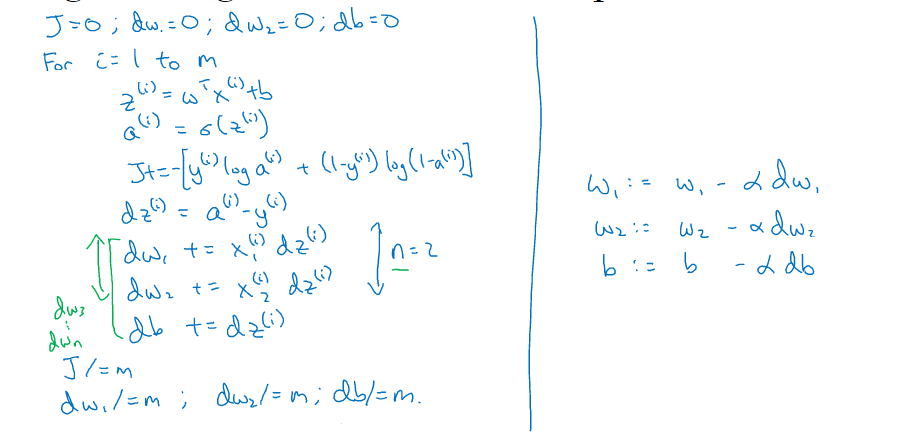 J=0 ; dw₁=0 ; dw₂=0 ; db=0
For i=1 to m
z⁽ⁱ⁾ = wᵀx⁽ⁱ⁾+b
a⁽ⁱ⁾ = σ(z⁽ⁱ⁾)
J+=-[y⁽ⁱ⁾ log a⁽ⁱ⁾ + (1-y⁽ⁱ⁾) log(1-a⁽ⁱ⁾)]
dz⁽ⁱ⁾ = a⁽ⁱ⁾-y⁽ⁱ⁾
dw₁ += x₁⁽ⁱ⁾ dz⁽ⁱ⁾
dw₂ += x₂⁽ⁱ⁾ dz⁽ⁱ⁾
n=2
db += dz⁽ⁱ⁾
dw₃
⋮
dwₙ
J /=m
dw₁/=m ; dw₂/=m ; db/=m.
w₁ := w₁ - α dw₁
w₂ := w₂ - α dw₂
b := b - α db